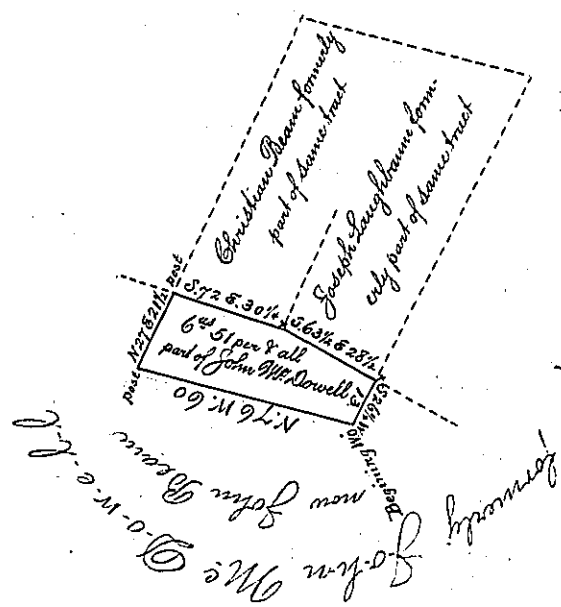 Christian Beam formerly
part of same tract
Joseph Laughbaum form-
erly part of same tract
post
N27E21½
post
S.72 E.30¼
S.63½ E 28½
6 as 51 per & all
part of John McDowell
13
S26½ W
N.76 W. 60
Begining
formerly
John McDowell
now John Beam